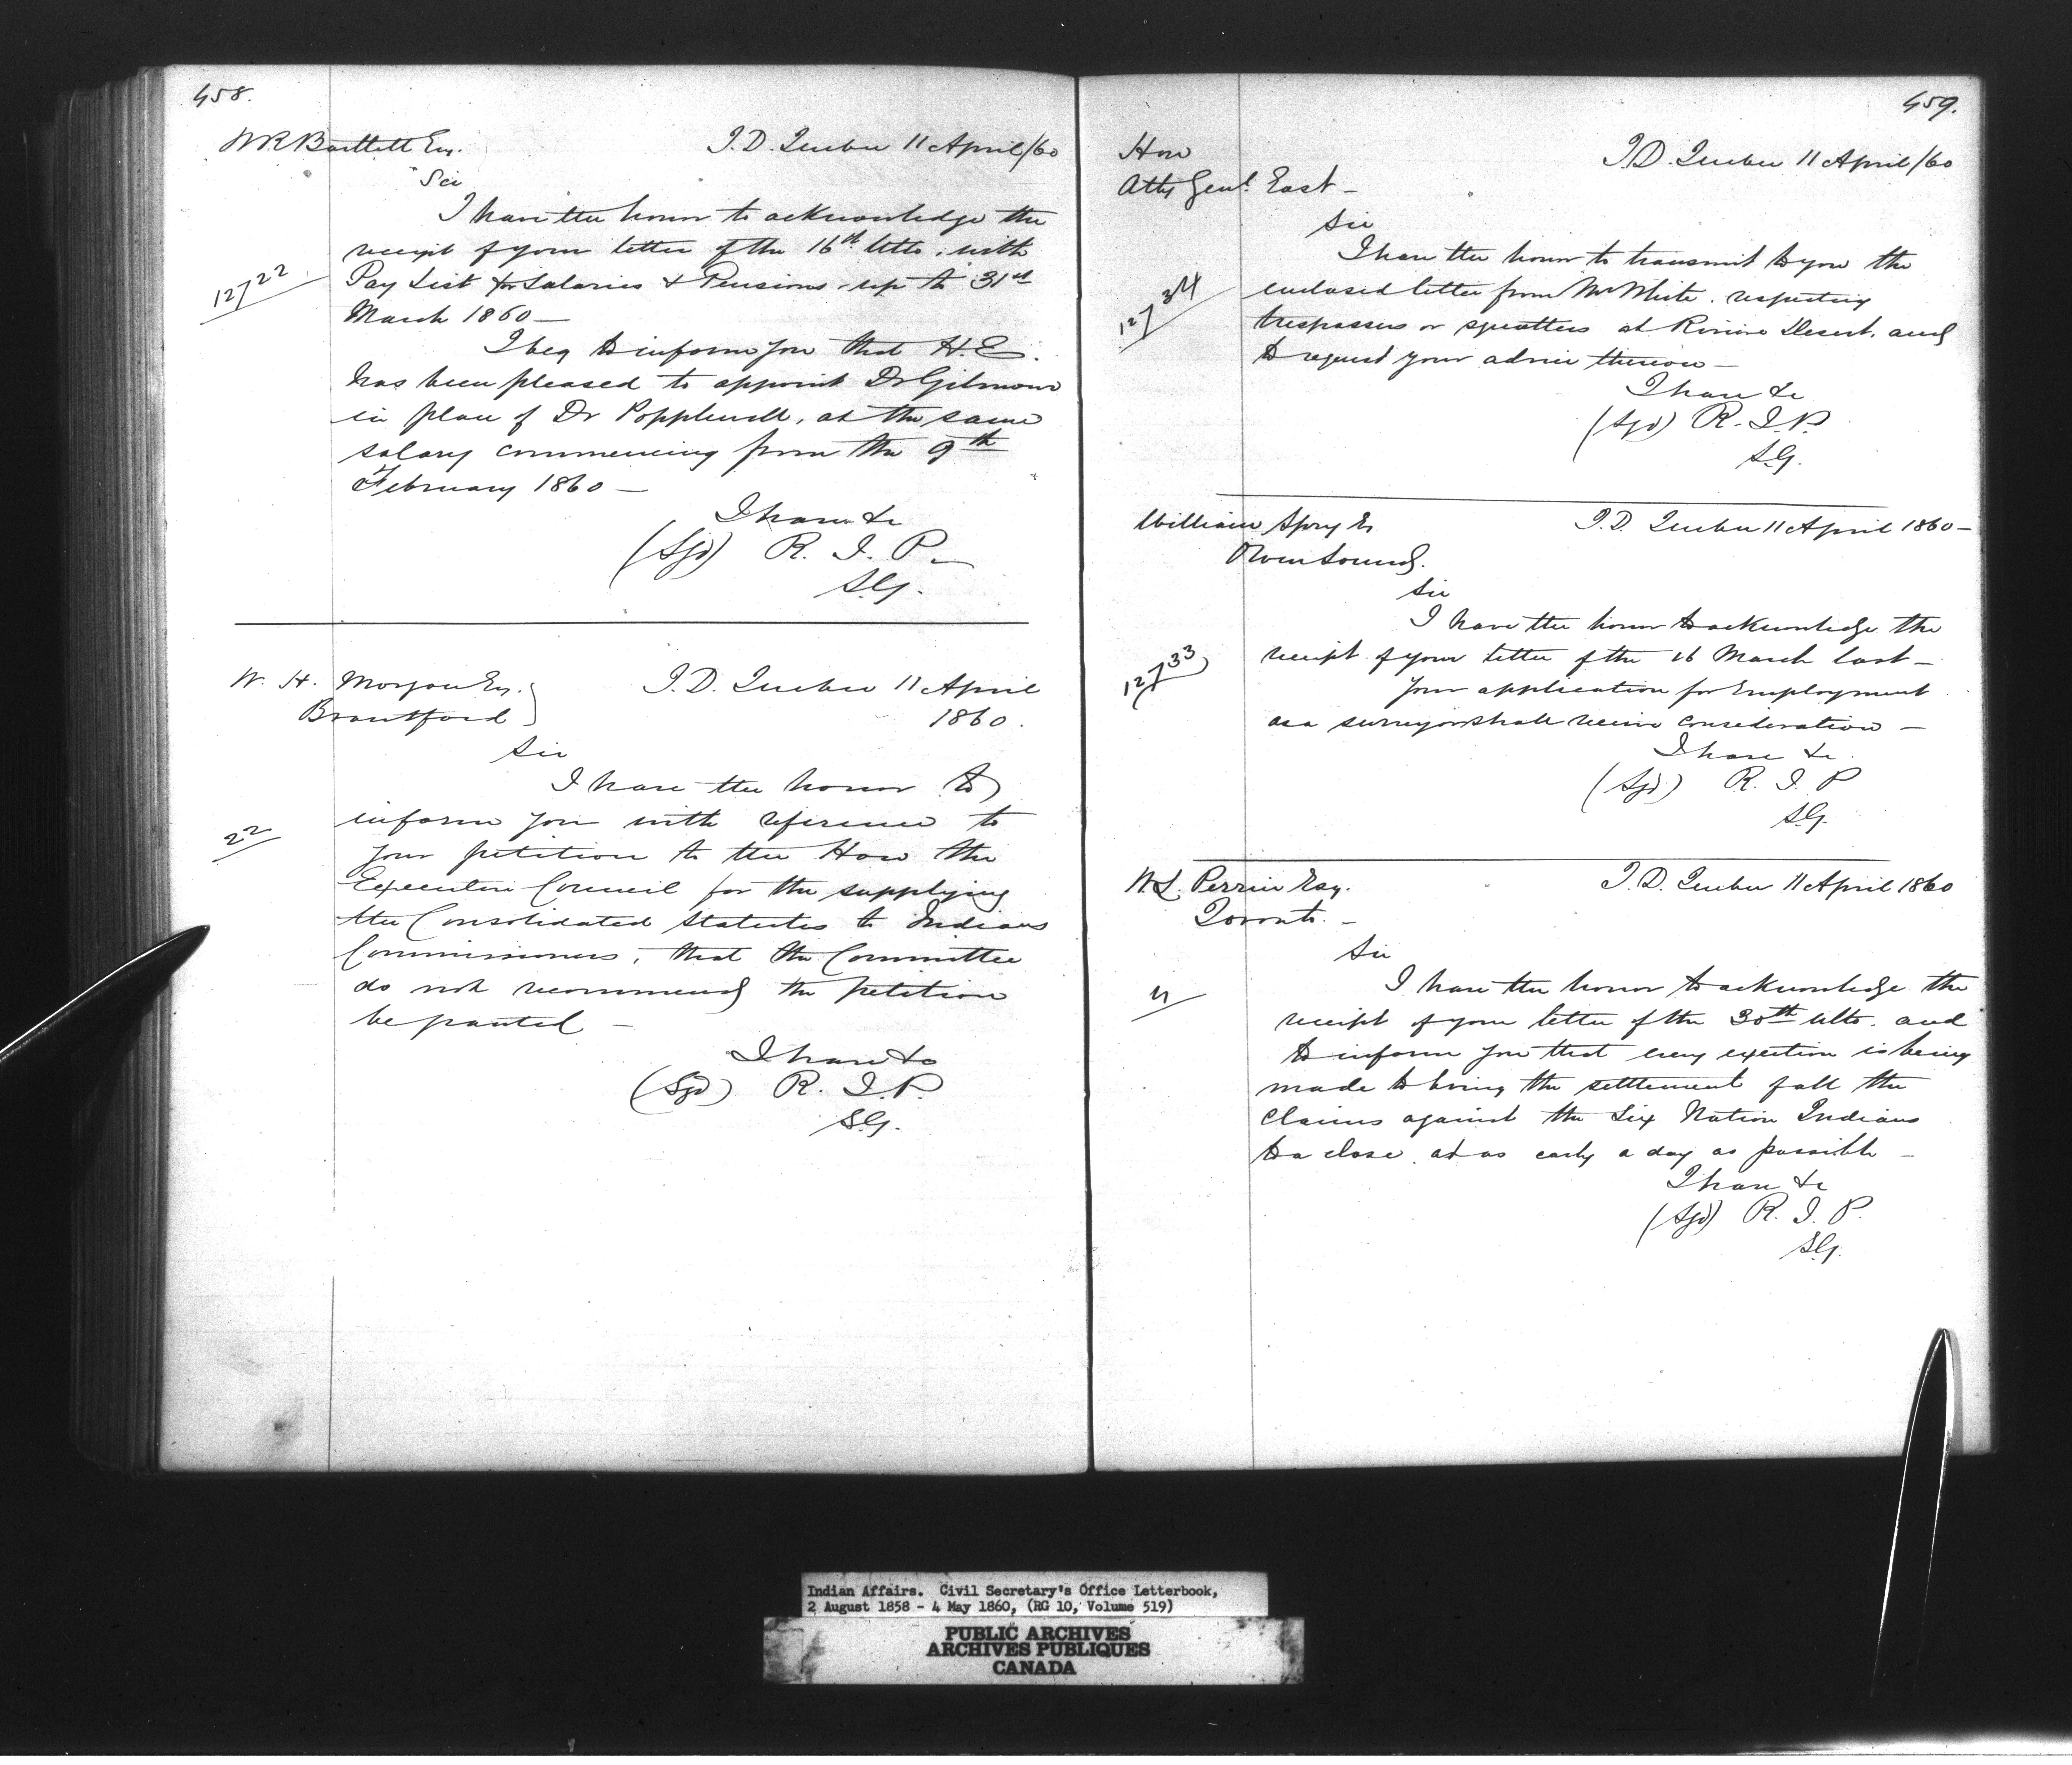 458.
W R Bartlett Esq.
I. D. Quebec 11 April/60
Sir
I have the honor to acknowledge the
receipt of your letter of the 16th Ulto. with
Pay List for Salaries & Pensions up to 31st
March 1860 —
12722
I beg to inform you that H. E.
has been pleased to appoint Dr Gilmour
in place of Dr Popplewell, at the same
salary commencing from the 9th
February 1860 —
I have &c
(Sgd) R. I. P.
S.G.
W. H. Morgan Esq.
Brantford
I. D. Quebec 11 April
1860.
Sir
I have the honor to
inform you with reference to
your petition to the Hon the
Executive Council for the supplying
the Consolidated Statutes to Indians
Commissioners, that the Committee
do not recommend the petition
be granted —
22
I have &c
(Sgd) R. I. P.
S.G.
459.
Hon
Atty Genl. East —
I. D. Quebec 11 April/60
Sir
I have the honor to transmit to you the
enclosed letter from Mr White. respecting
trespassers or squatters at Rivière Desert. and
to request your advice thereon —
12734
I have &c
(Sgd) R. I. P.
S.G.
William Spry Es
Owen Sound.
I. D. Quebec 11 April 1860 —
Sir
I have the honor to acknowledge the
receipt of your letter of the 16 March last —
Your application for Employment
as a surveyor shall receive consideration —
12733
I have &c.
(Sgd) R. I. P
S.G.
W L. Perrin Esq.
Toronto. —
I. D. Quebec 11 April 1860
Sir
I have the honor to acknowledge the
receipt of your letter of the 30th Ulto. and
to inform you that every exertion is being
made to bring the settlement of all the
claims against the Six Nation Indians
to a close. at as early a day as possible —
I have &c
(Sgd) R. I. P.
S.G.
Indian Affairs. Civil Secretary's Office Letterbook,
2 August 1858 - 4 May 1860, (RG 10, Volume 519)
PUBLIC ARCHIVES
ARCHIVES PUBLIQUES
CANADA